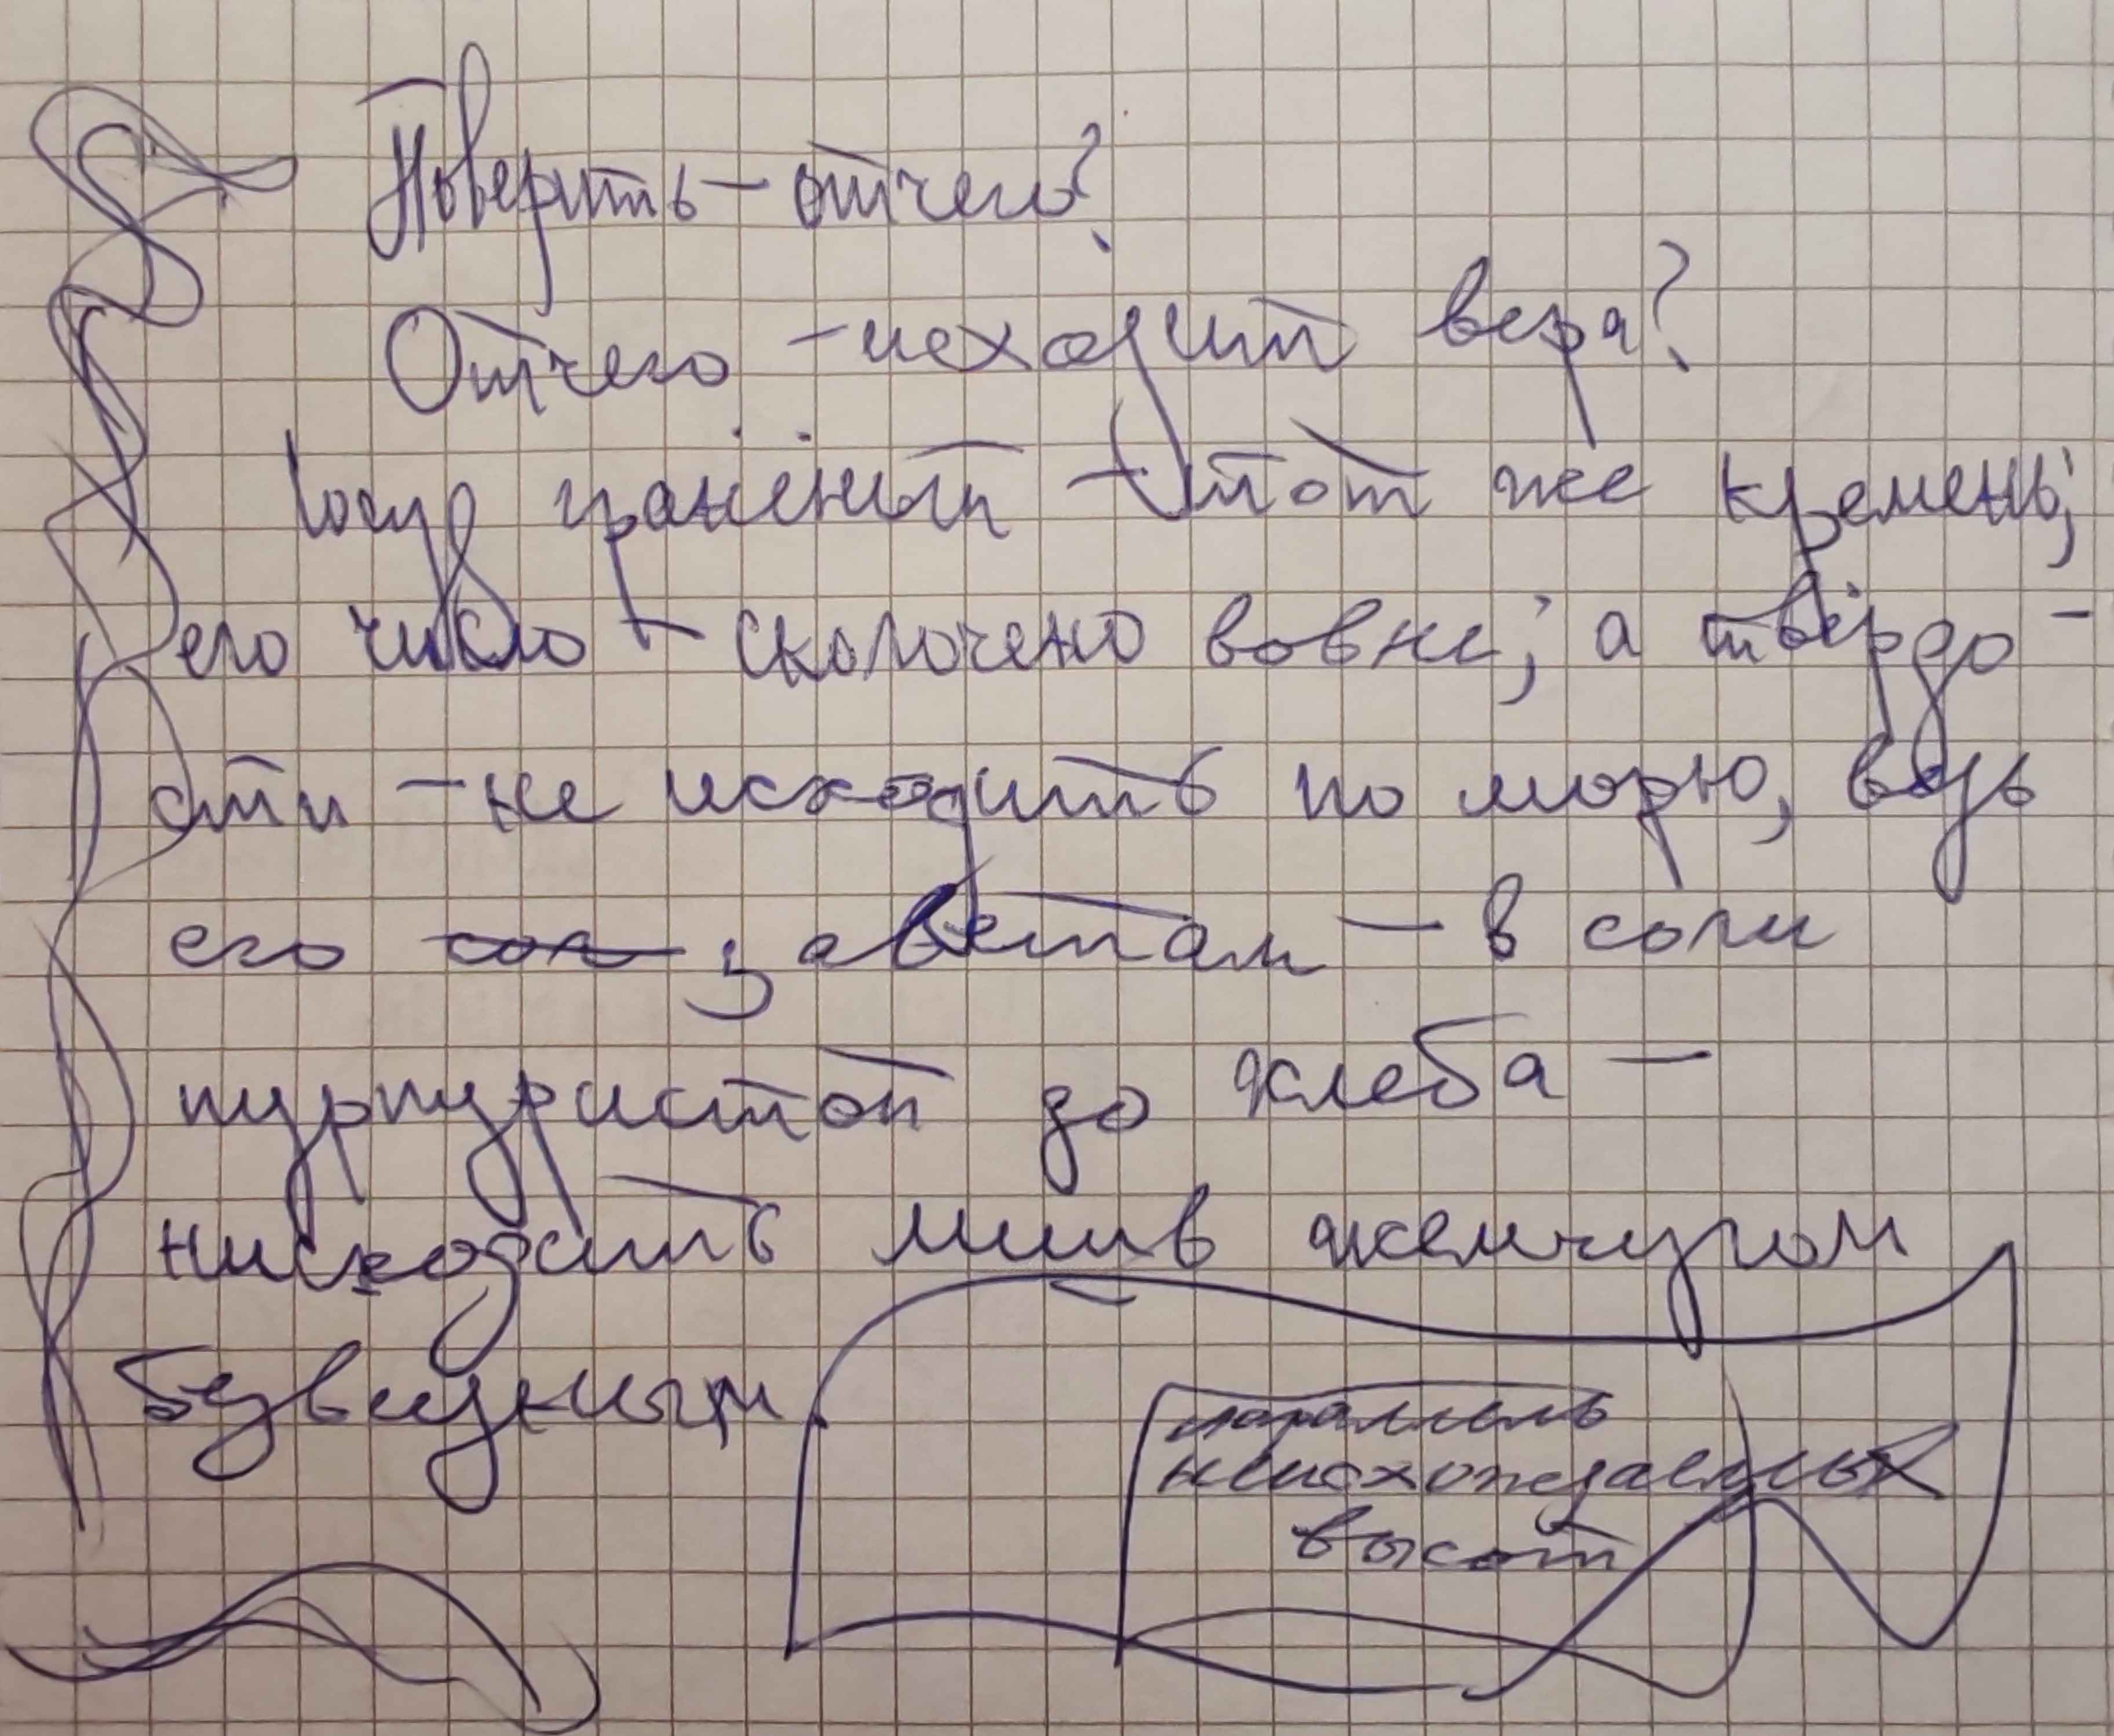 Поверить – отчего?
Отчего – исходит вера?
Сосуд гранёный – тот же кремень;
его число – сколочено вовне; а твёрдо-
сти – не исходить по морю, ведь
его заветам – в соли
пурпуристой до хлеба –
нисходить лишь жемчугом
безвидным.
параллель
неисхождаемых
высот